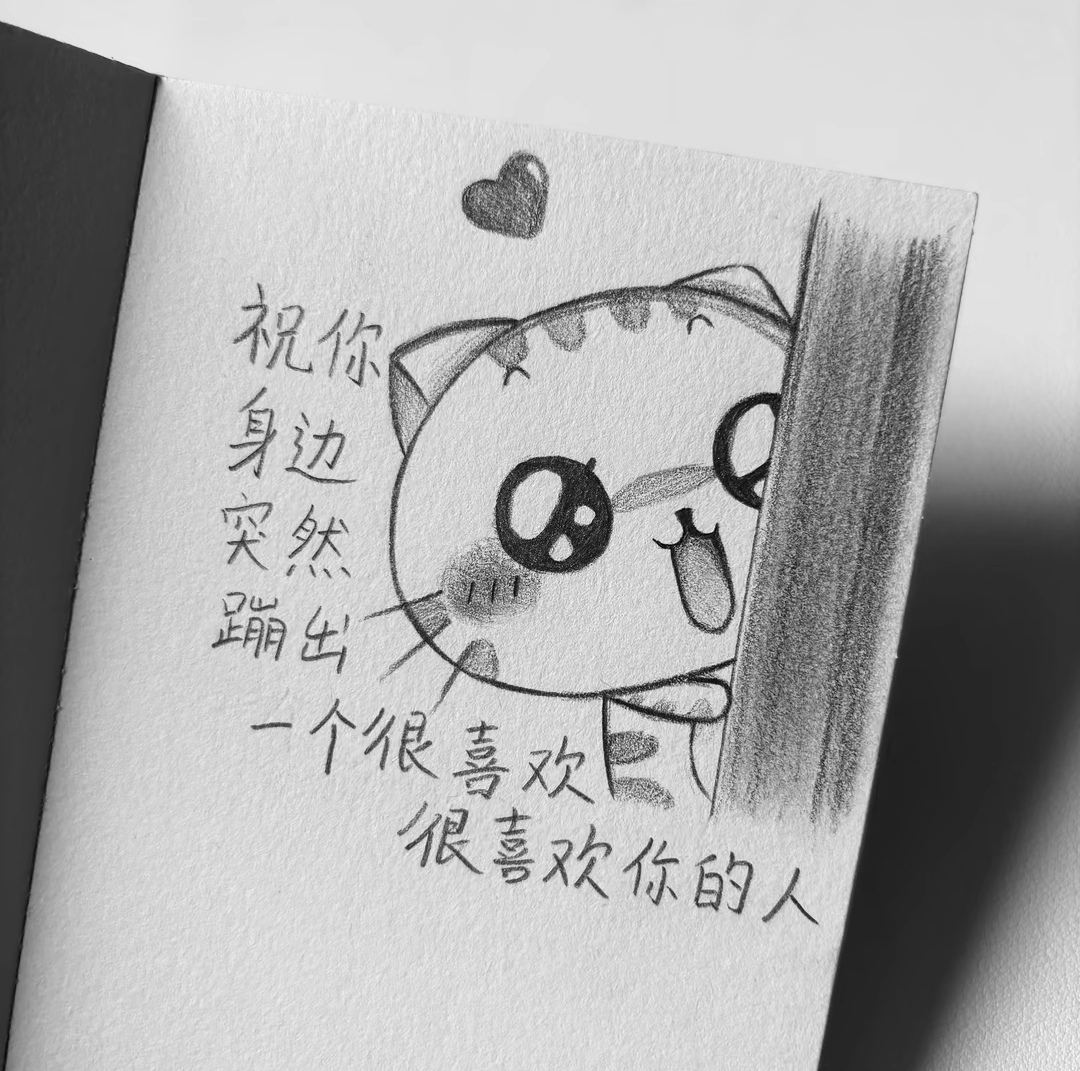 祝你
身边
突然
蹦出
一个很喜欢
很喜欢你的人